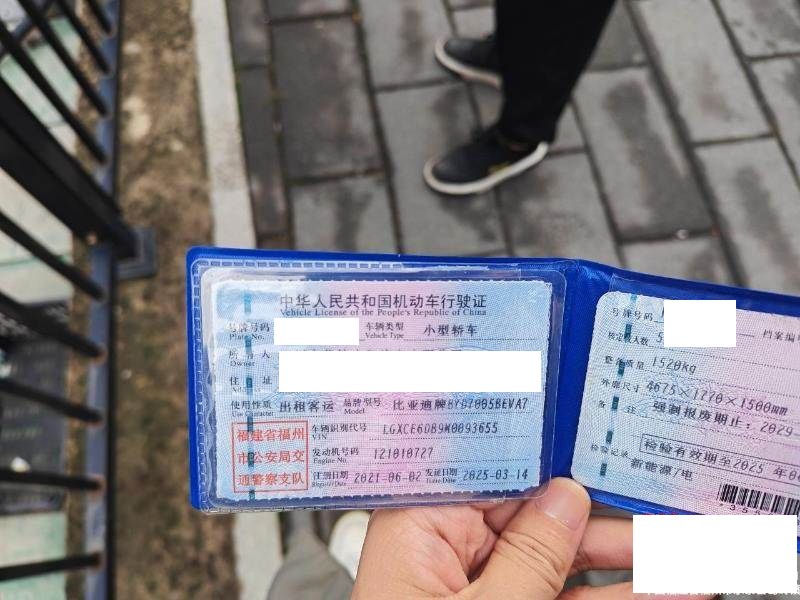 中华人民共和国机动车行驶证
Vehicle License of the People's Republic of China
号牌号码
Plate No.
车辆类型 小型轿车
Vehicle Type
所 人
Owner
住 址
使用性质 出租客运 品牌型号 比亚迪牌BYD7005BEVA7
Use Character Model
福建省福州
市公安局交
通警察支队
车辆识别代号 LGXCE6DB9M0093655
VIN
发动机号码 121010727
Engine No.
注册日期 2021-06-02 发证日期 2025-03-14
Register Date Issue Date
号牌号码
档案编号
核定载人数 5
整备质量 1520kg
外廓尺寸 4675×1770×1500mm
备 注 强制报废期止：2029-
检验有效期至2025 年0
检验记录
新能源/电